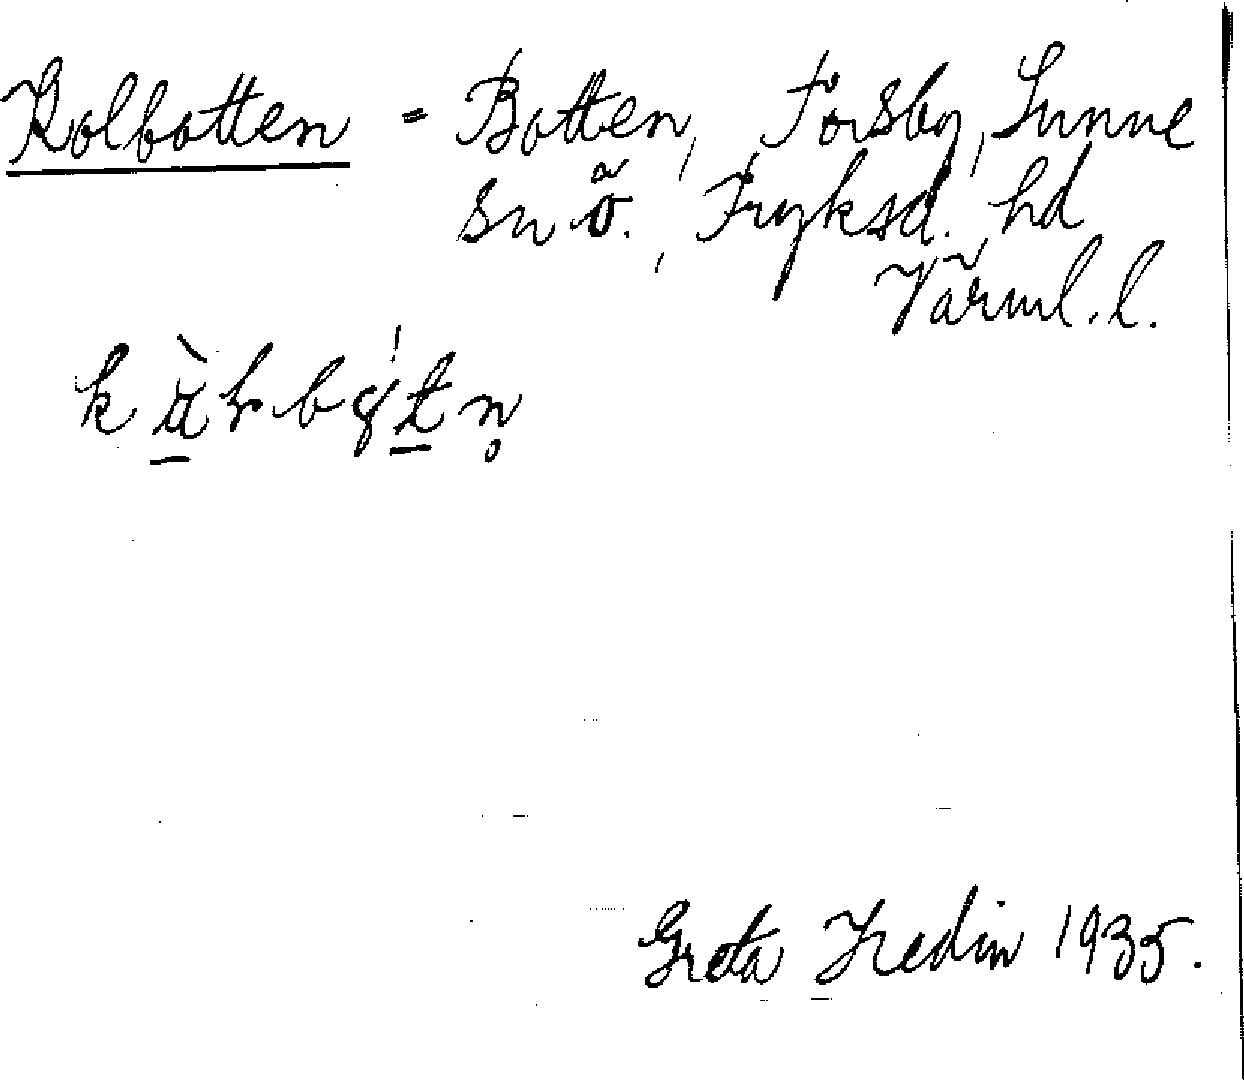 Kolbotten = Botten, Torsby, Sunne
sn ö., Fryksd. hd
Värml. l.
Greta Hedin 1935.